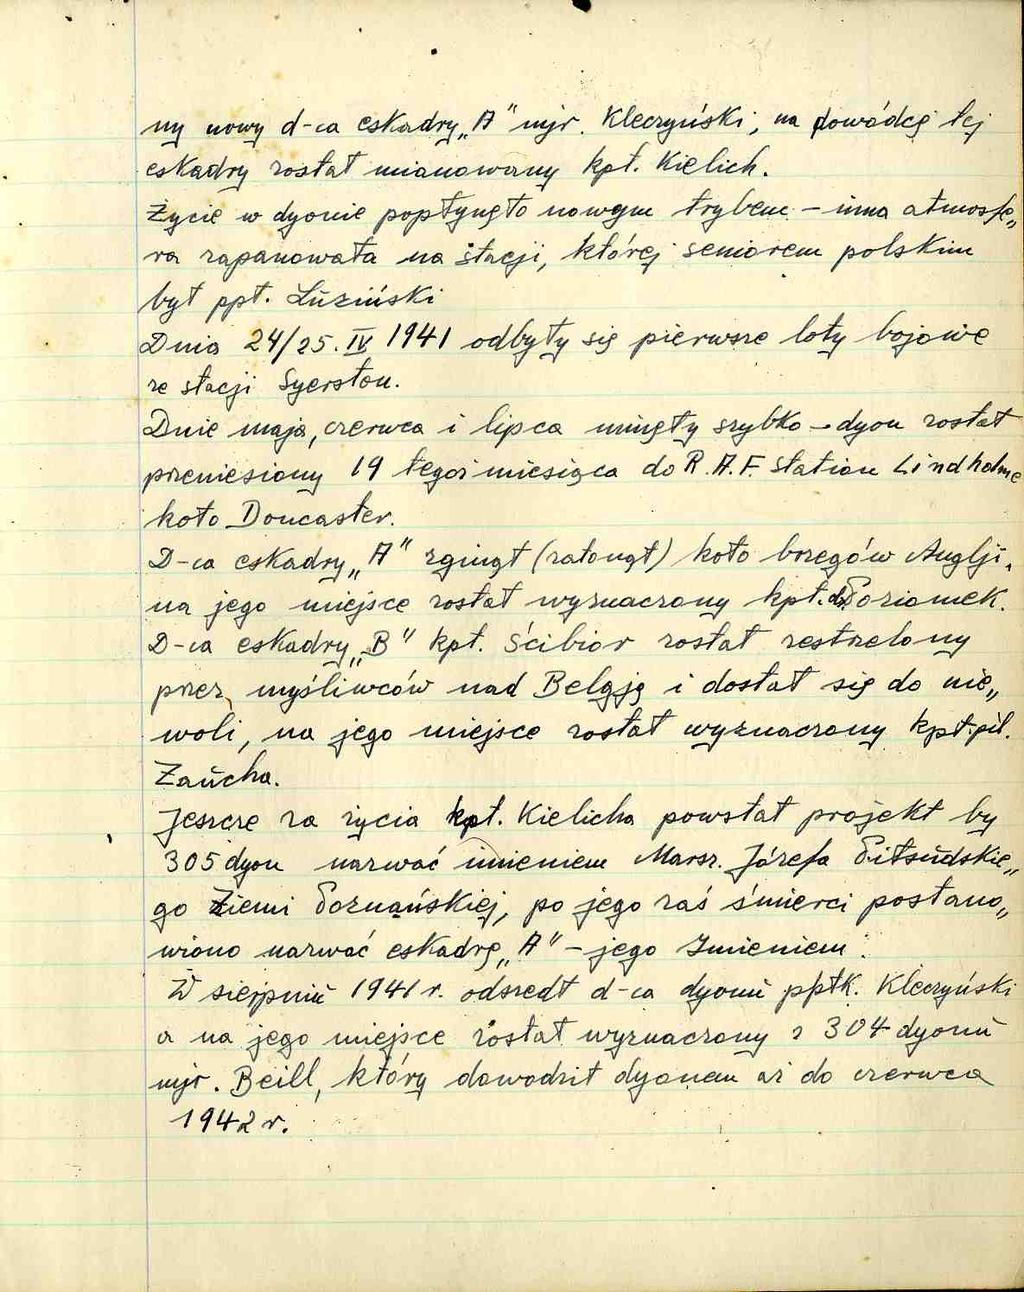 ny nowy d-ca eskadry „A" mjr. Kleczyński, na dowódcę tej
eskadry został mianowany kpt. Kielich.
Życie w dyonie popłynęło nowym trybem – inna atmosfe„
ra zapanowała na stacji, której seniorem polskim
był ppł. Luziński
Dnia 24/25.IV 1941 odbyły się pierwsze loty bojowe
ze stacji Syerston.
Dnie maja, czerwca i lipca minęły szybko – dyon został
przeniesiony 19 tegoż miesiąca do R.A.F. station Lindholme
koło Doncaster.
D-ca eskadry „A" zginął (zatonął) koło brzegów Anglji,
na jego miejsce został wyznaczony kpt. Poziomek.
D-ca eskadry „B" kpt. Ścibior został zestrzelony
przez myśliwców nad Belgją i dostał się do nie„
woli, na jego miejsce został wyznaczony kpt. pil.
Zaucha.
Jeszcze za życia kpt. Kielicha powstał projekt by
305 dyon nazwać imieniem Marsz. Józefa Piłsudskie„
go Ziemi Poznańskiej, po jego zaś śmierci postano„
wiono nazwać eskadrę „A" – jego Imieniem.
W sierpniu 1941 r. odszedł d-ca dyonu ppłk. Kleczyński
a na jego miejsce został wyznaczony z 304 dyonu
mjr. Beill, który dowodził dyonem aż do czerwca
1942 r.